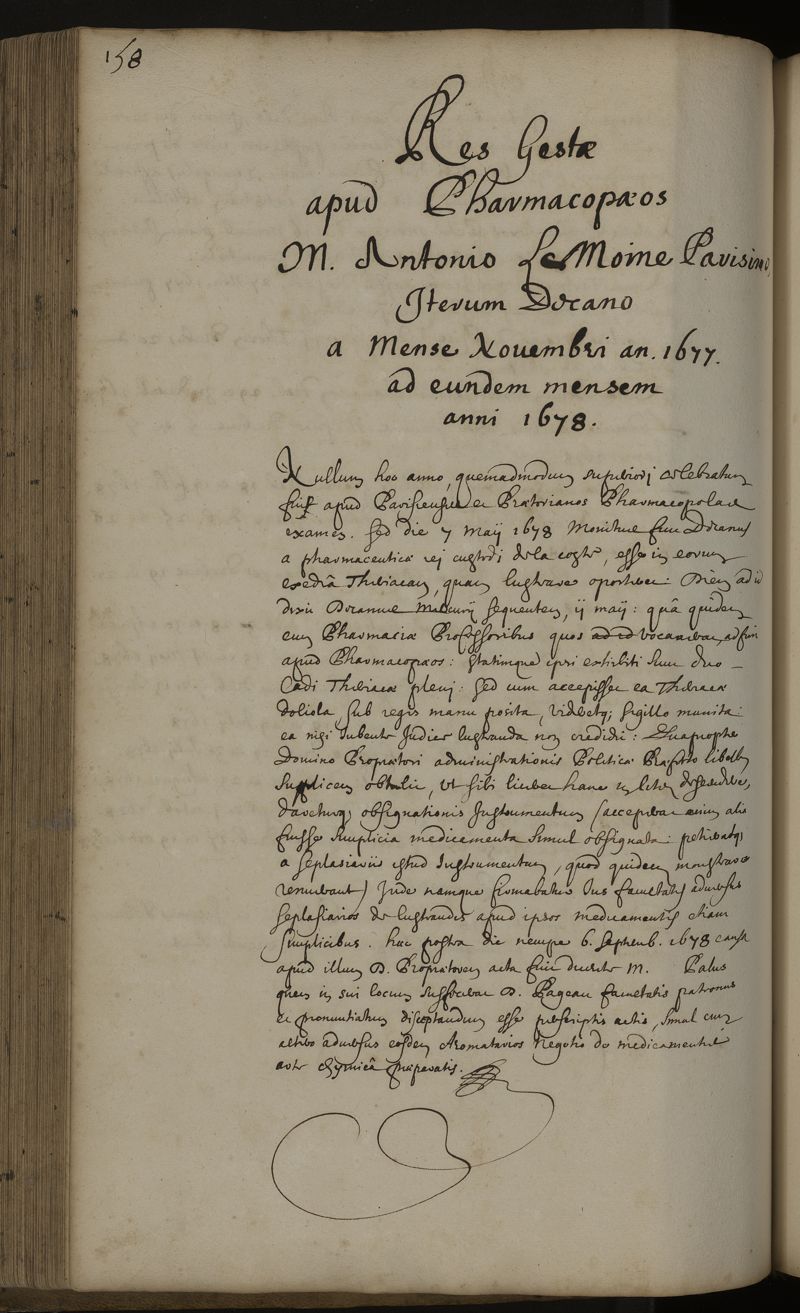 158
Res Gestæ
apud Pharmacopæos
M. Antonio Le Moine Parisino,
Iterum Decano
a Mense Novembri an. 1677.
ad eundem mensem
anni 1678.
Nullum hoc anno, quemadmodum superiori celebratum
fuit apud Parisienses et Prætorianos Pharmacopolas
examen. Sed die 7 Maij 1678 Monitus fuit Decanus
a pharmaceuticæ rei custodi de la coste, esse in eorum
exedrâ Theriacam, quam lustrare oporteret: Diem ad id
dixit Decanus Mercurij sequentem, ij maij: quâ quidem
cum Pharmaciæ Professoribus quos ad id vocaverat, adfuit
apud Pharmacopæos: statimque ipsi exhibiti sunt duo
Cadi Theriacæ pleni: sed cum accepisset ea Theriacæ
doliola, sub regis manu posita, sigillo munita
ea nisi Judice lustranda non credidit: Quapropter
Domino Proprætori administrationis Politicæ Præfecto libellum
supplicem obtulit, ut sibi liceret hanc
obsignationis Instrumentum (acceperat enim alia
fuisse simplicia medicamenta simul obsignata: petieratque
a seplasiariis istud Instrumentum, quod quidem monstrare
renuerant) Inde namque firmabatur Jus facultatis adversus
seplasiarios de lustrandis apud ipsos medicamentis etiam
simplicibus. hac postea die nempe 6. Septemb. 1678 causa
apud illum D. Proprætorem acta fuit ducente M. Palus
quem in sui locum suffecerat D. Pageau facultatis patronus
et pronuntiatum disceptandum esse perscriptis actis, simul cum
altero adversus eosdem Aromatarios Negotio de medicamentis
arte chymicâ præparatis.